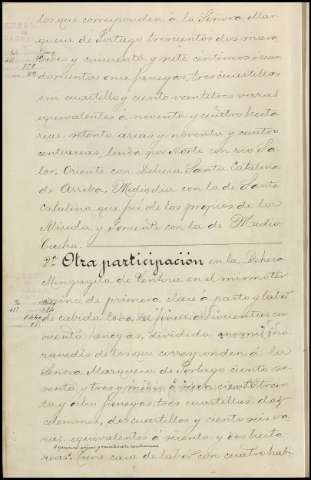 los que corresponden á la Señora Mar-
quesa de Portago trescientos dos mara
vedises y cincuenta y siete céntimos o sean
doscientas once fanegas, tres cuartillas
un cuartillo y ciento veintitres varas
equivalentes á noventa y cuatro hectá
reas, setenta areas y noventa y cuatro
centiareas, linda por Norte con rio Sa
lor, Oriente con Dehesa Santa Catalina
de Arriba, Mediodia con la de Santa
Catalina que fué de los propios de
y Poniente con la de Media
Cacha.
2ª Otra participación en la Dehesa
en el mismo tér
mino de primera clase á pasto y labor
de cabida
cuenta fanegas, dividida
ravedis de los que corresponden á la
Señora Marquesa de Portago ciento se
senta y tres y
ta y ocho fanegas, tres cuartillas, dos
, dos cuartillos y ciento seis va
ras, equivalentes á ciento y dos hectá
reas
Tiene casa de labor con cuatro habi